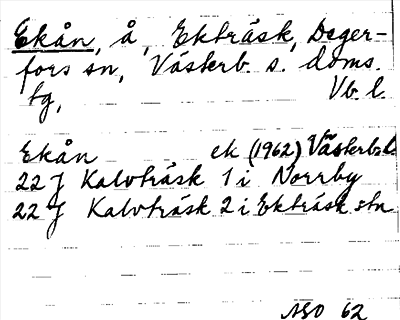 Ekån, å, Ekträsk, Deger-
fors sn, Västerb. s. doms.
tg, Vb. l.
Ekån ek (1962) Västerb. l.
22 J Kalvträsk 1 i Norrby
22 J Kalvträsk 2 i Ekträsk stn
62